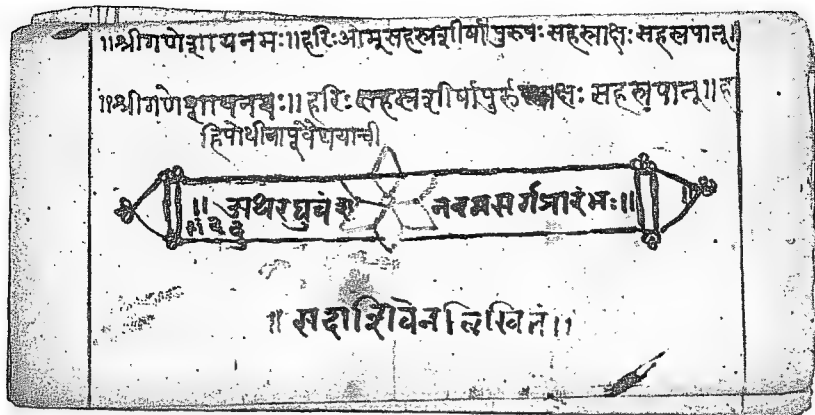 ॥श्रीगणेशायनमः॥हरिःओम्सहस्त्रशीर्षापुरुषःसहस्त्राक्षःसहस्त्रपात्॥
॥श्रीगणेशायनयः॥हरिः सहस्त्रशीर्षापुर्ल क्षः सहस्त्रपात्॥ह
हिपोथीबापूवैद्ययाची
॥ अथरघुवंश नवमसर्गप्रारंभः॥
१२३
॥सदाशिवेनलिखितं॥